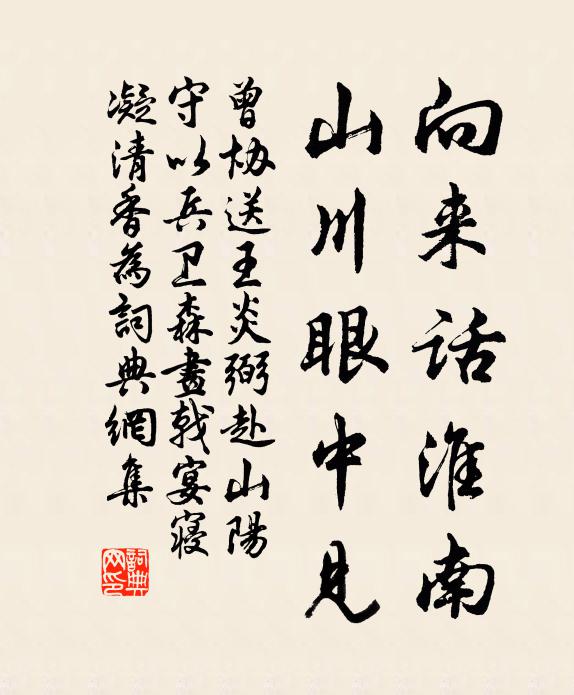 向来话淮南
山川眼中见
曾协送王炎弼赴山陽
守以兵卫森畫戟宴寝
凝清香為詞典網集
詞典网印